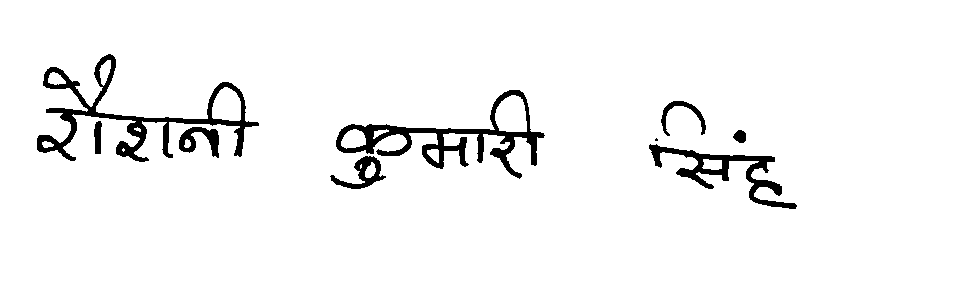 रौशनी कुमारी सिंह